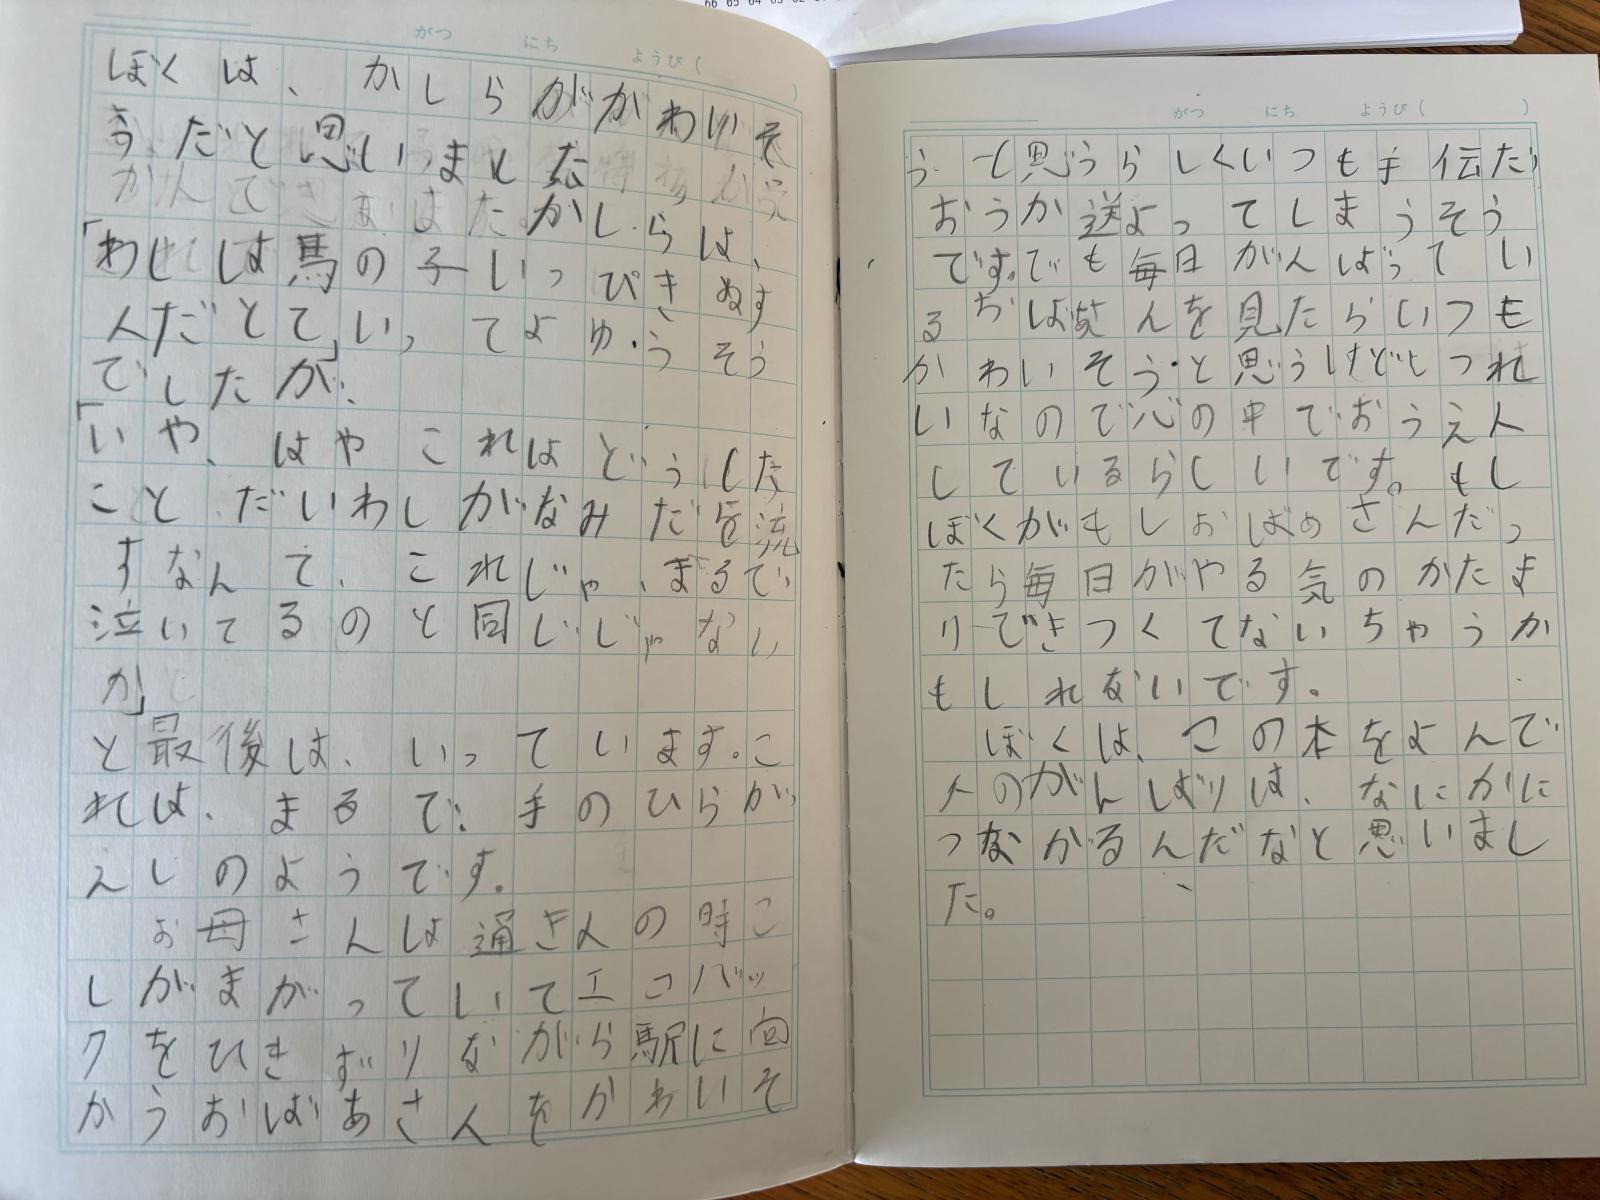 がつ にち ようび( )
ぼくは、かしらががわいそ
うだと思いいました
かしらは、
「わしは馬の子いっぴきぬす
人だとて」いってよゆうそう
でしたが、
「いや、はやこれはどうした
ことだいわしがなみだを流
すなんて、これじゃ、まるで
泣いてるのと同じじゃない
か」
と最後は、いっています。こ
れは、まるで、手のひらがい
えしのようです。
お母さんは通きんの時こ
しがまがっていてエコバッ
クをひきずりながら駅に向
かうおばあさんをかわいそ
がつ にち ようび( )
うと思うらしくいつも手伝
おうか送よってしまうそう
です。でも毎日がんばってい
るおばあさんを見たらいつも
かわいそうと思うけどしつれ
いなので心の中でおうえん
しているらしいです。もし
ぼくがもしおばあさんだっ
たら毎日がやる気のかたま
りできつくてないちゃうか
もしれないです。
ぼくは、この本をよんで
人のがんばりは、なにかに
つながるんだなと思いまし
た。